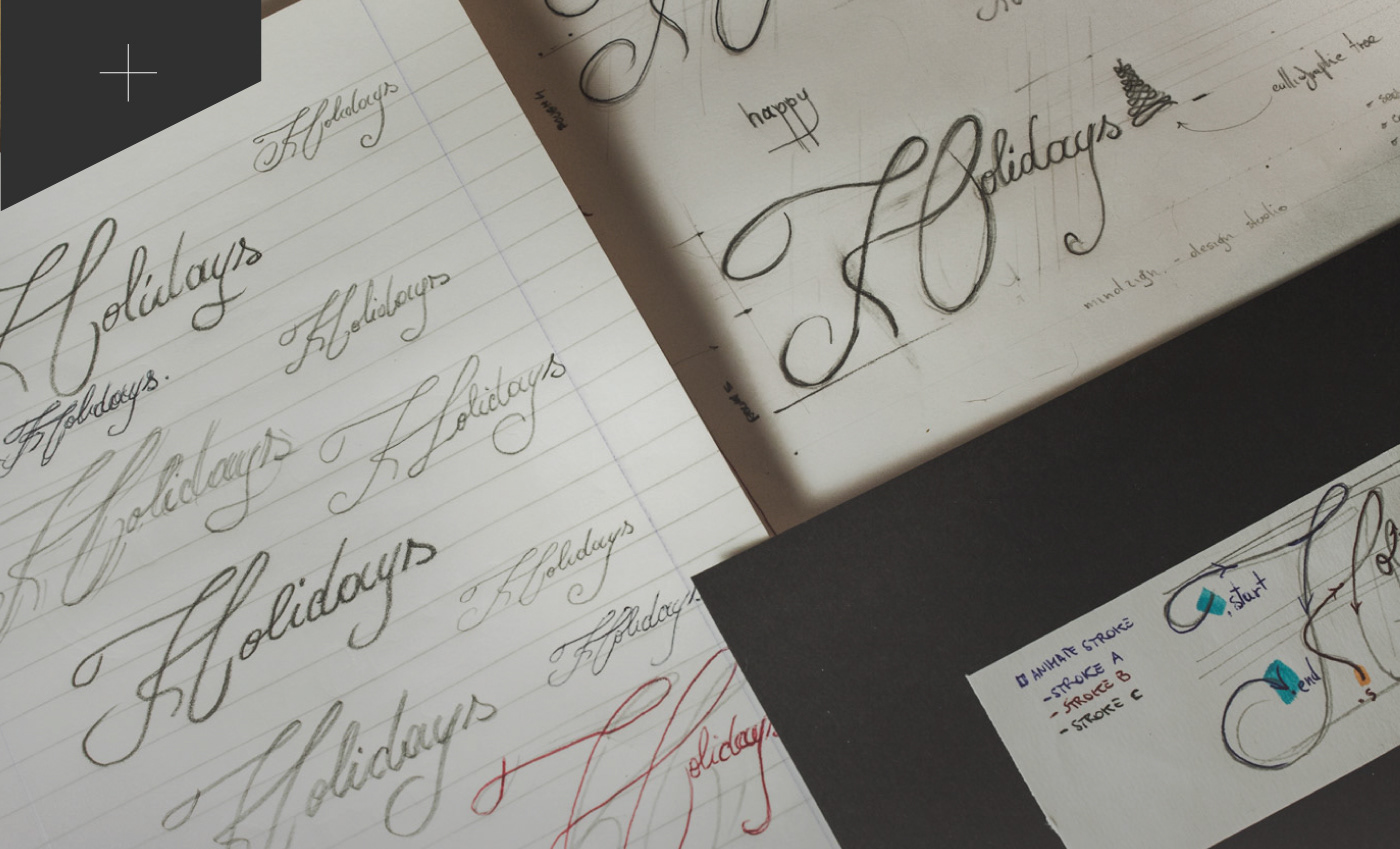 Holidays
Holidays
Holidays
Holidays.
Holidays
Holidays
Holidays
Holidays
Holidays
Holidays
Holidays
happy
Holidays
calligraphic tree
mindzign. - design studio
ANIMATE STROKE
- STROKE A
- STROKE B
- STROKE C
.start
.end
.s
Ho